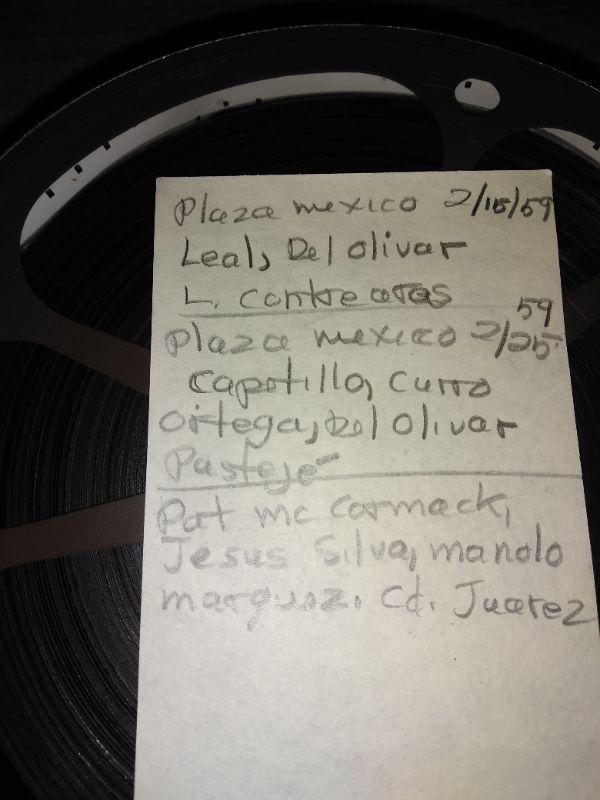 Plaza mexico 2/15/59
Leal, Del olivar
L. contreras
59
Plaza mexico 2/25
Capetillo, Curro
Ortega, Del Olivar
Pastejé
Pat mc Cormack,
Jesus Silva, manolo
marquez. Cd. Juarez